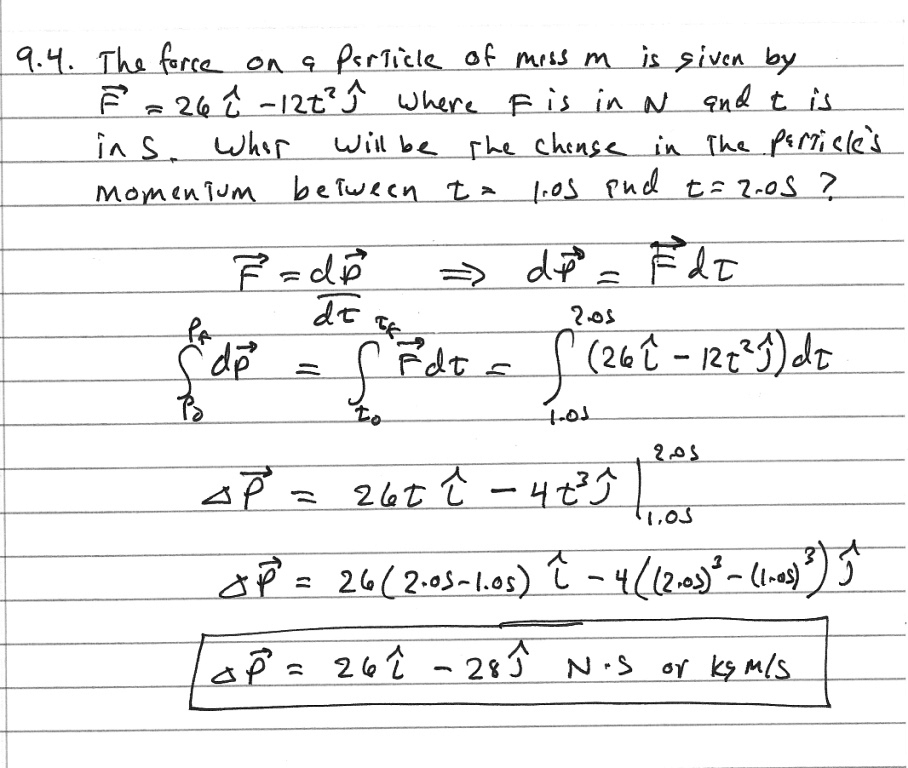 9.4. The force on a particle of mass m is given by
F⃗ = 26 î - 12t² ĵ where F is in N and t is
in s. What will be the change in the particle's
momentum between t = 1.0s and t = 2.0s ?
F⃗ = dp⃗/dt ⇒ dp⃗ = F⃗ dt
∫_{p₀}^{p_f} dp⃗ = ∫_{t₀}^{t_f} F⃗ dt = ∫_{1.0s}^{2.0s} (26 î - 12t² ĵ) dt
Δp⃗ = 26t î - 4t³ ĵ |_{1.0s}^{2.0s}
Δp⃗ = 26(2.0s-1.0s) î - 4((2.0s)³ - (1.0s)³) ĵ
Δp⃗ = 26 î - 28 ĵ N·s or kg m/s